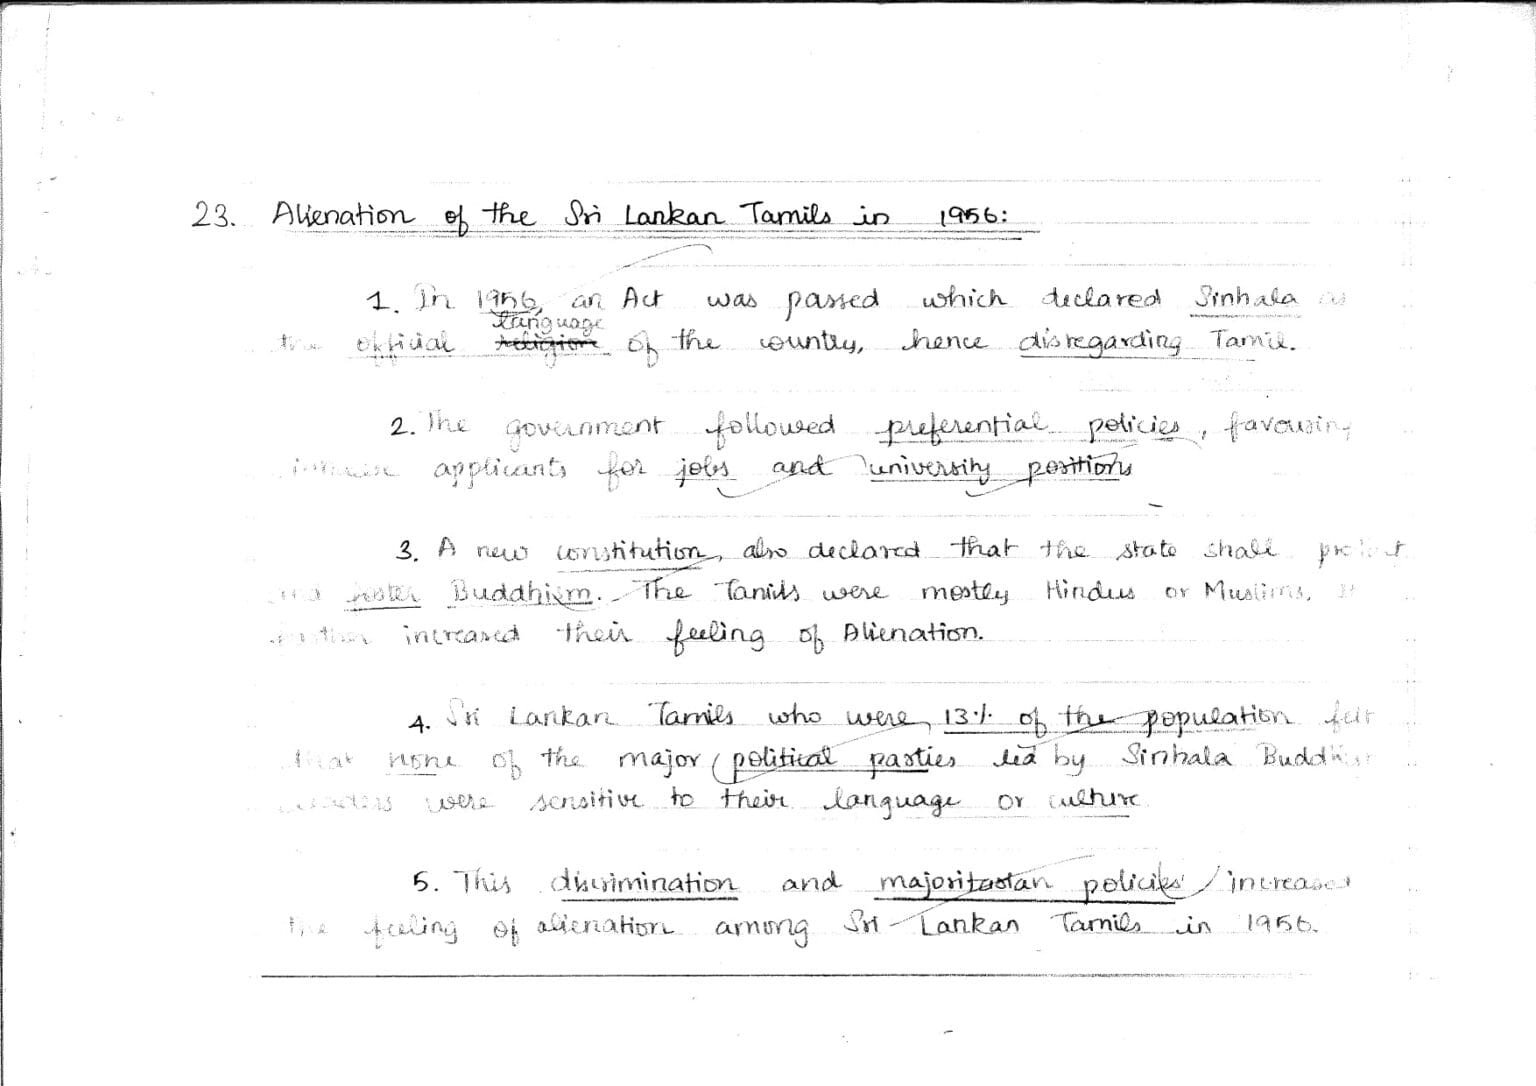 23. Alienation of the Sri Lankan Tamils in 1956:
1. In 1956, an Act was passed which declared Sinhala as
language
the official religion of the country, hence disregarding Tamil.
2. The government followed preferential policies, favouring
applicants for jobs and university positions
3. A new constitution, also declared that the state shall protect
and foster Buddhism. The Tamils were mostly Hindus or Muslims, it
further increased their feeling of Alienation.
4. Sri Lankan Tamils who were 13% of the population felt
that none of the major political parties led by Sinhala Buddhist
leaders were sensitive to their language or culture
5. This discrimination and majoritarian policies increased
the feeling of alienation among Sri Lankan Tamils in 1956.